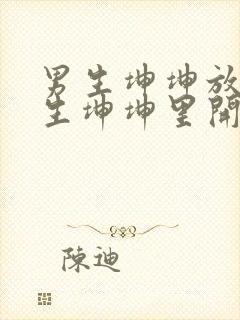 男生坤坤放
生坤坤里開
陳迪